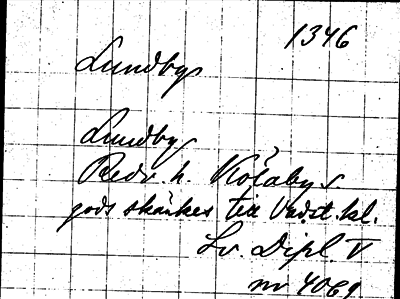 1346
Lundby
Lundby
Redv. h. Kölaby s.
gods skänkes till Vadst. kl.
Sv. Dipl V
nr 4069